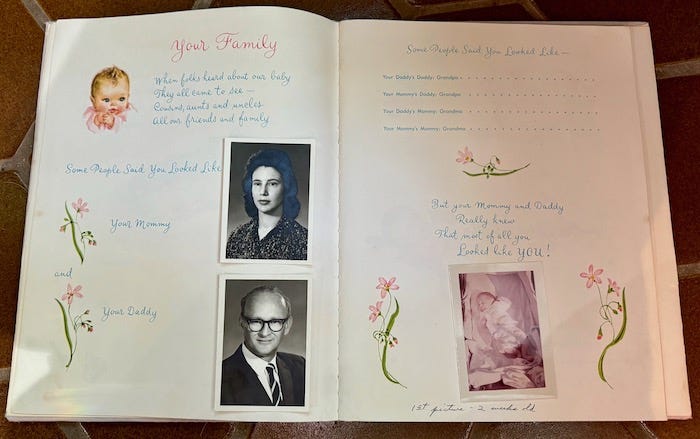 Your Family
When folks heard about our baby
They all came to see —
Cousins, aunts and uncles
All our friends and family
Some People Said You Looked Like
Your Mommy
and
Your Daddy
Some People Said You Looked Like —
Your Daddy's Daddy: Grandpa
Your Mommy's Daddy: Grandpa
Your Daddy's Mommy: Grandma
Your Mommy's Mommy: Grandma
But your Mommy and Daddy
Really knew
That most of all you
Looked like YOU!
1st picture - 2 weeks old